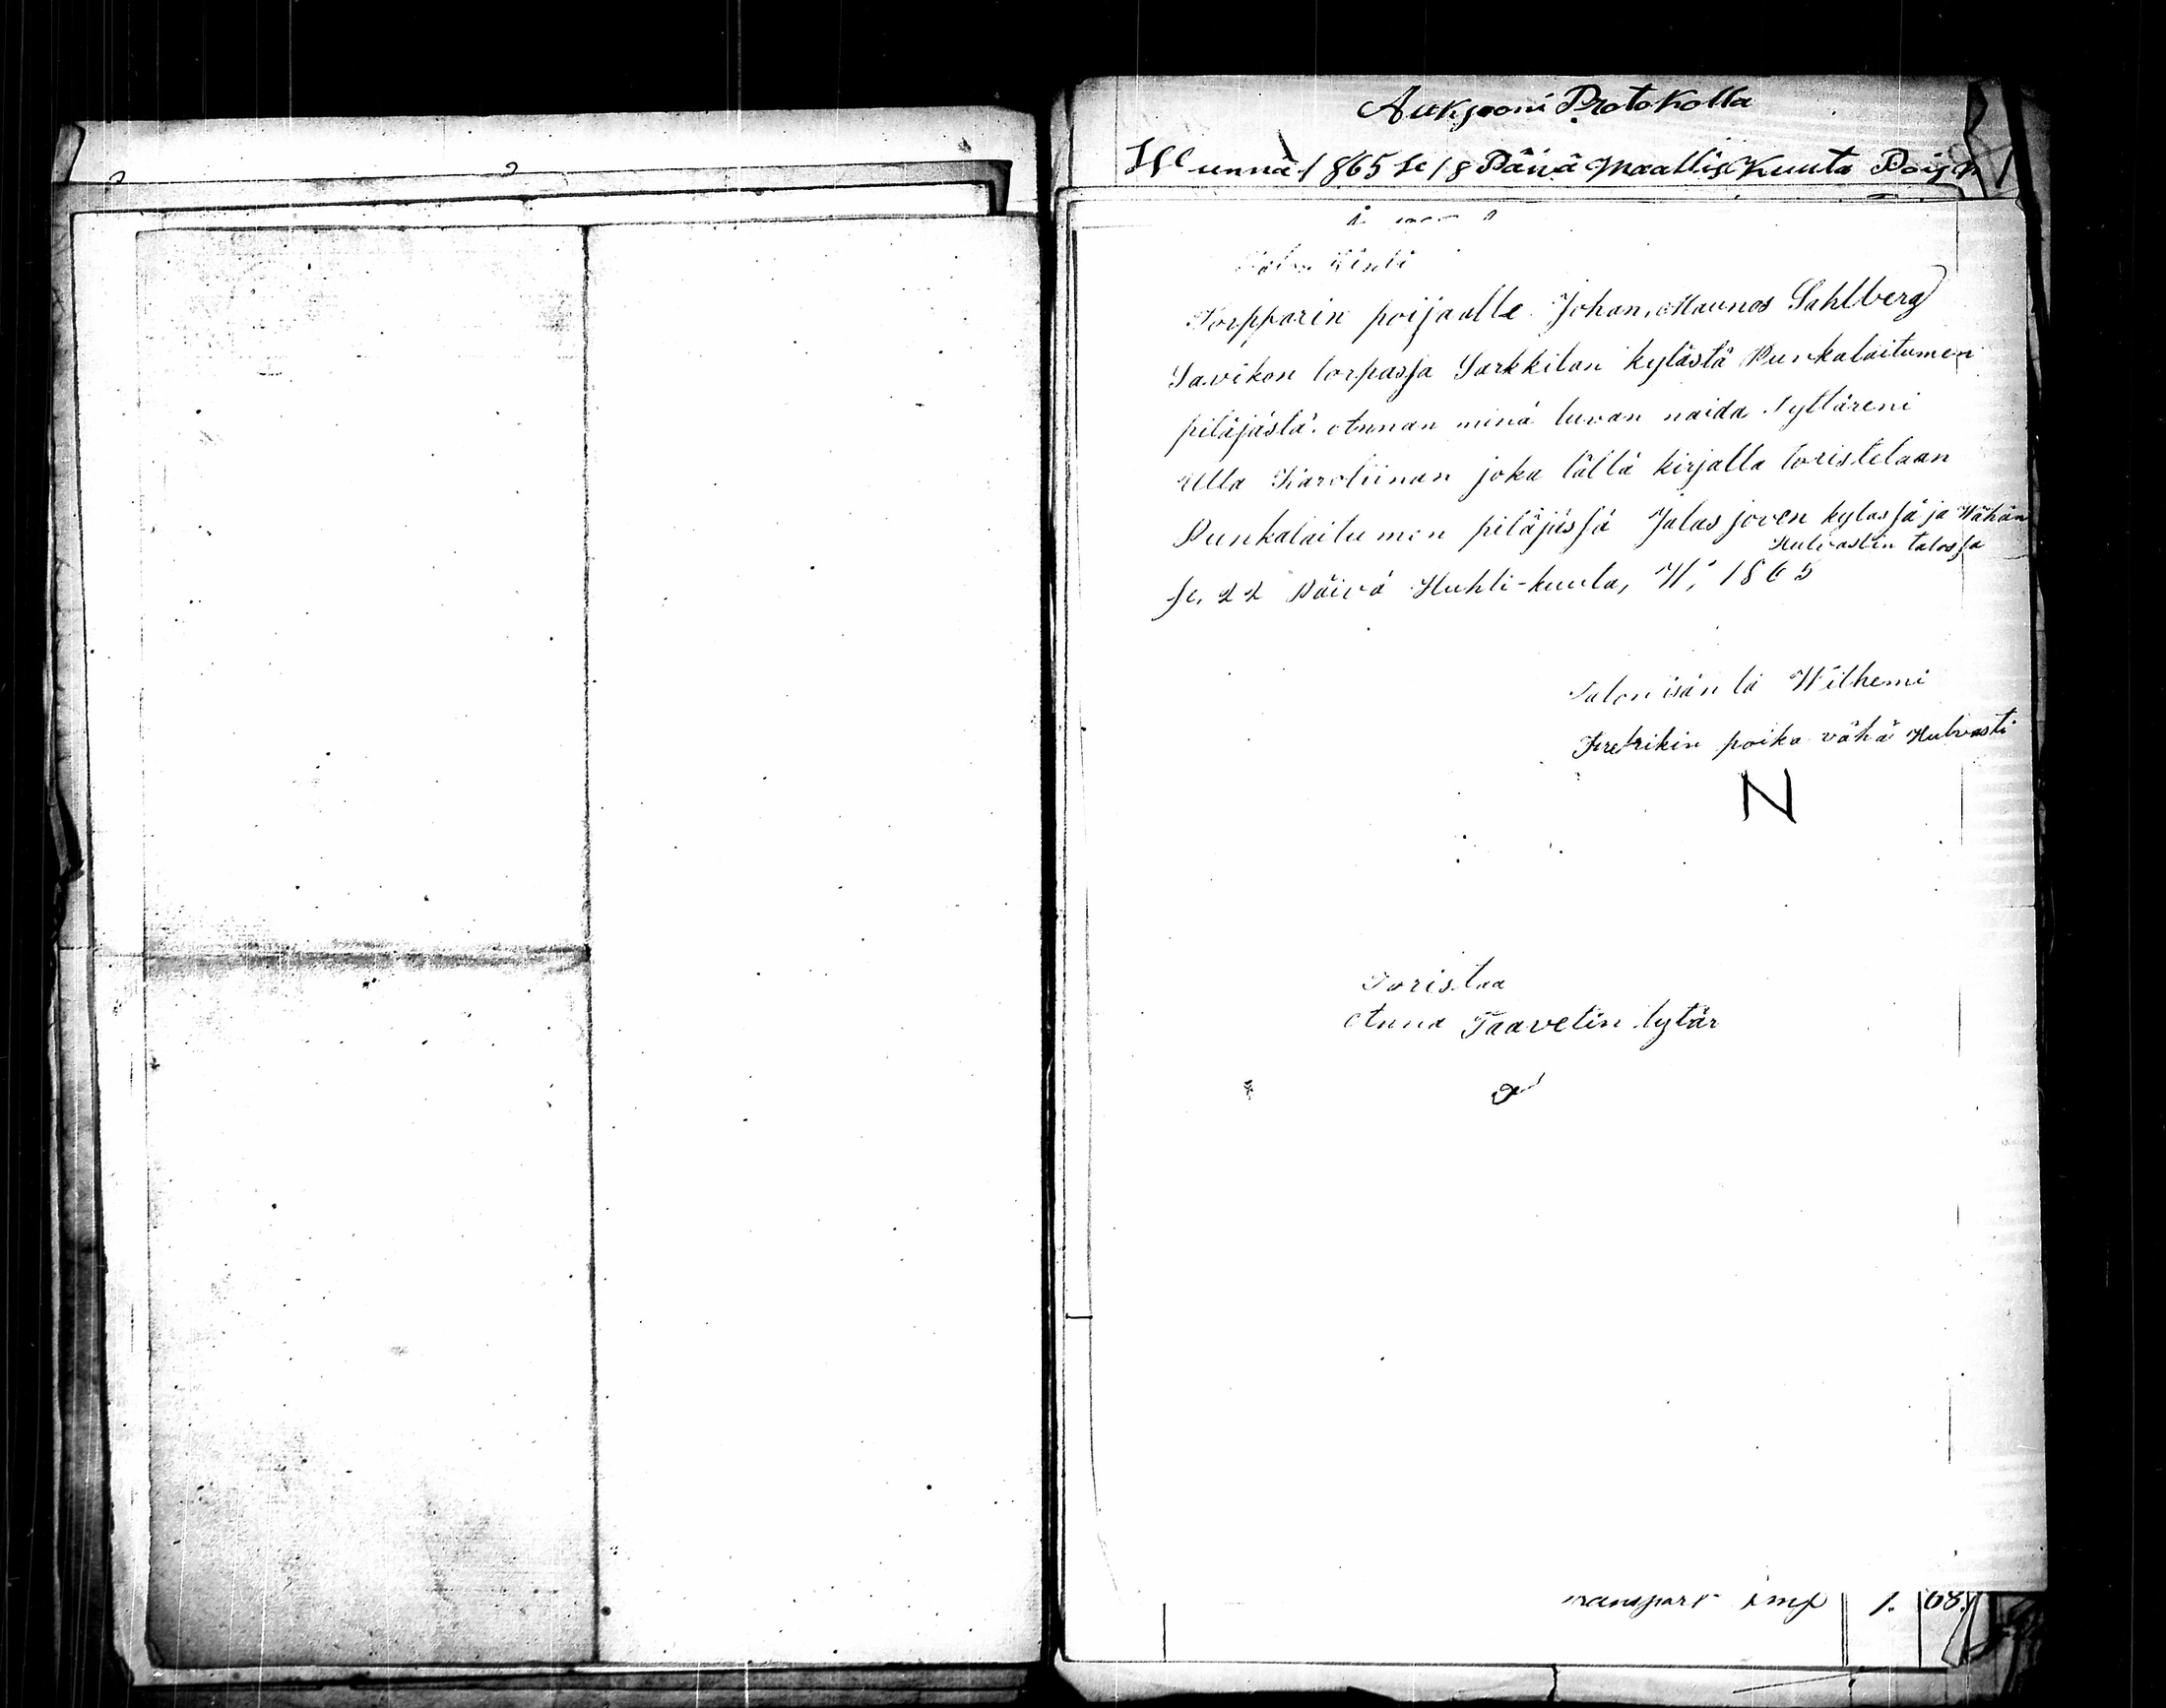 Auksooni Protokolla
Wunna 1865 se 18 Päivä Maallis Kuuta
Torpparin poijaalle Johan, Maunos Sahlberg
Savikon torpassa Sarkkilan kylästä Punkalaitumen
pitäjästä. Annan minä luvan naida Tyttäreni
Ulla Karoliinan joka tällä kirjalla toristetaan
Punkalaitumen pitäjässä Jalasjoven kylassä ja Wähän
Hulvastin talossa
se, 22 Päivä Huhti-kuuta, W, 1865
Talon isäntä Wilhemi
Fretrikin poika vähä Hulvasti
N
Toristaa
Anna Taavetin tytär
Transport Smp 1. 68.